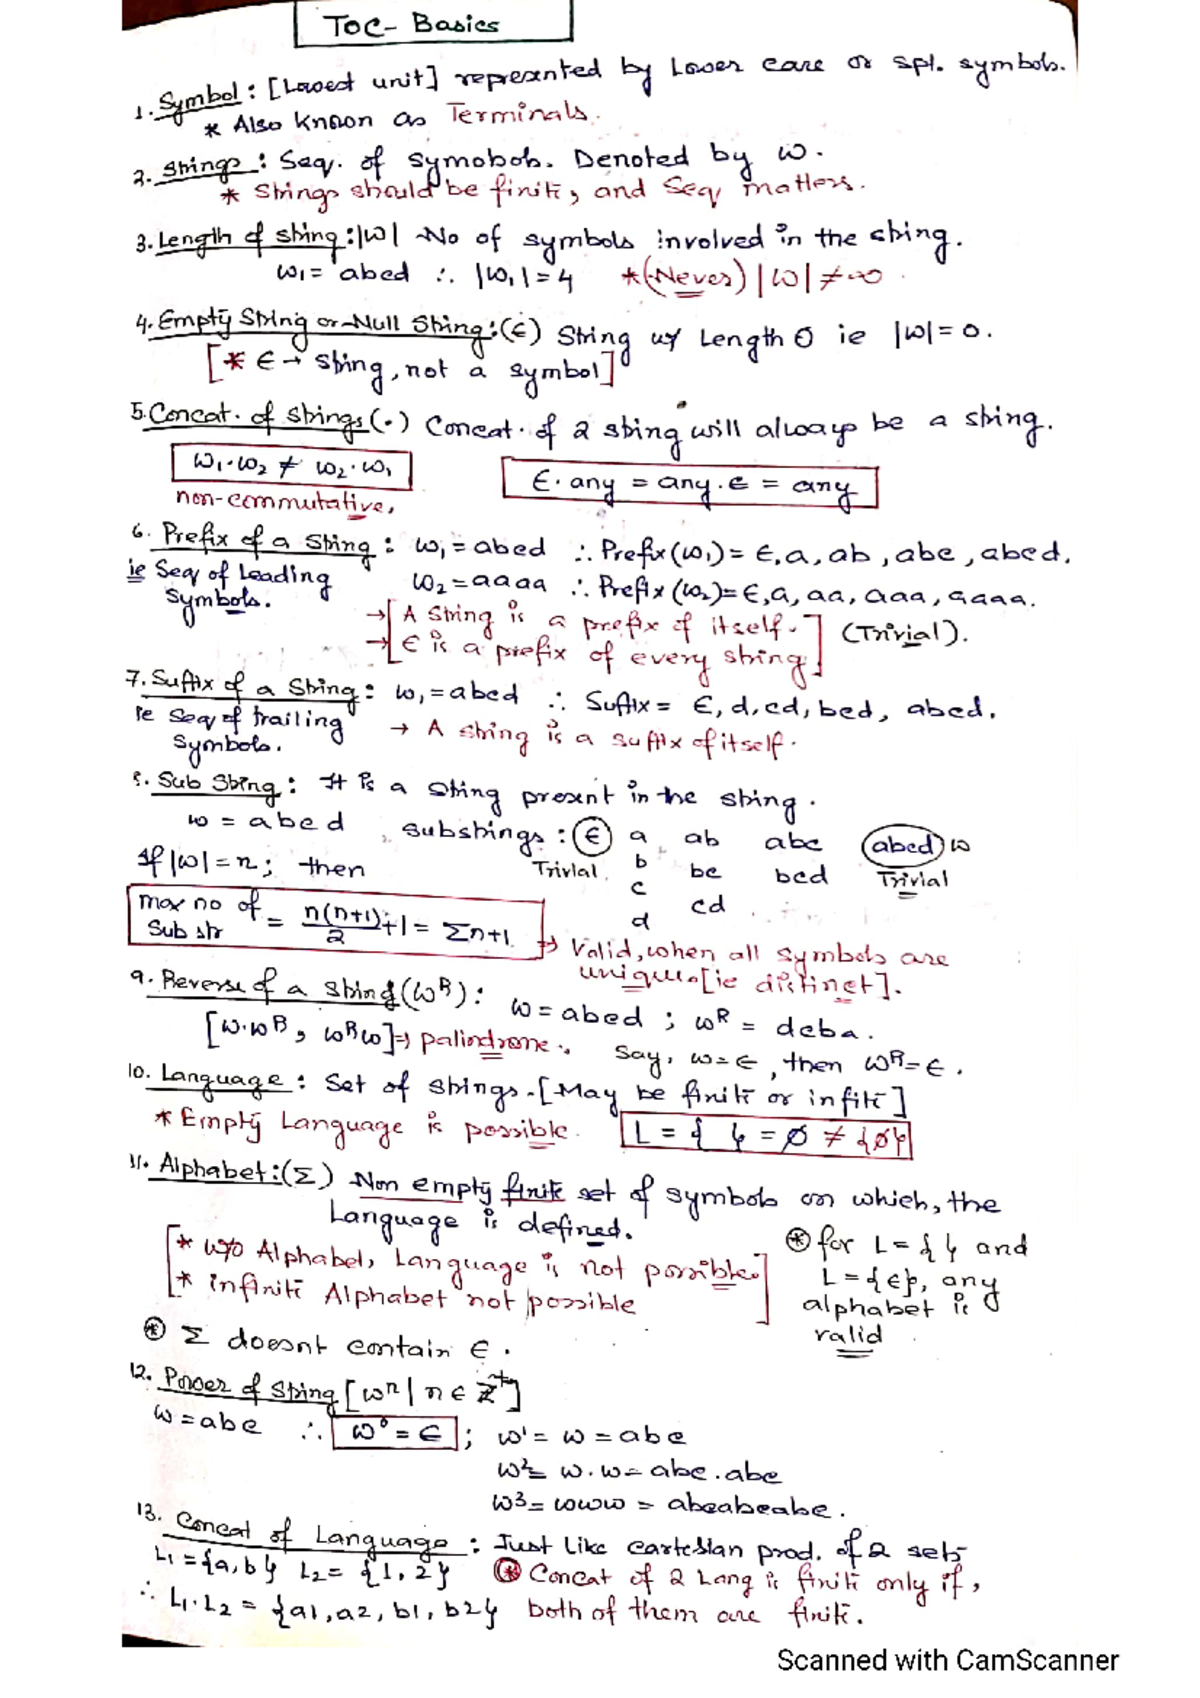 TOC- Basics
1. Symbol : [Lowest unit] represented by Lower case or spl. symbols.
* Also known as Terminals.
2. Strings : Seq. of symobols. Denoted by w.
* Strings should be finite, and Seq matters.
3. Length of string : |w| No of symbols involved in the string.
w₁ = abcd ∴ |w₁| = 4 *(Never) |w| ≠ ∞
4. Empty String or Null String : (ϵ) String w/ Length 0 ie |w| = 0.
[* ϵ → string, not a symbol]
5. Concat. of strings (.) Concat. of 2 string will always be a string.
w₁.w₂ ≠ w₂.w₁ ϵ.any = any.ϵ = any
non-commutative.
6. Prefix of a string : w₁ = abcd ∴ Prefix(w₁) = ϵ, a, ab, abc, abcd.
ie Seq of Leading w₂ = aaaa ∴ Prefix (w₂) = ϵ, a, aa, aaa, aaaa.
symbols. → [A string is a prefix of itself.] (Trivial).
→ [ϵ is a prefix of every string]
7. Suffix of a String : w₁ = abcd ∴ Suffix = ϵ, d, cd, bcd, abcd.
ie Seq of trailing → A string is a suffix of itself.
symbols.
8. Sub String : It is a string present in the string.
w = abcd substrings : ϵ a ab abc abcd w
If |w| = n; then Trivial b bc bcd Trivial
c cd
d
max no of Sub str = n(n+1)/2 + 1 = Σn+1 → Valid, when all symbols are
unique [ie distinct].
9. Reverse of a string (wᴿ) : w = abcd ; wᴿ = dcba.
[w.wᴿ, wᴿw] ⇒ palindrome. Say, w = ϵ, then wᴿ = ϵ.
10. Language : Set of strings. [May be finite or infite]
* Empty Language is possible. L = { } = ∅ ≠ {∅}
11. Alphabet : (Σ) Non empty finite set of symbols on which, the
Language is defined.
[* w/o Alphabet, Language is not possible.
* infinite Alphabet not possible]
⊛ for L = { } and
L = {ϵ}, any
alphabet is
valid
⊛ Σ doesnt contain ϵ.
12. Power of String [wⁿ | n ∈ Z⁺]
w = abc ∴ w⁰ = ϵ ; w¹ = w = abc
w² = w.w = abc.abc
w³ = www = abcabcabc.
13. Concat of Language : Just like cartesian prod. of 2 sets
L₁ = {a, b} L₂ = {1, 2} ⊛ Concat of 2 Lang is finite only if,
∴ L₁.L₂ = {a1, a2, b1, b2} both of them are finite.
Scanned with CamScanner